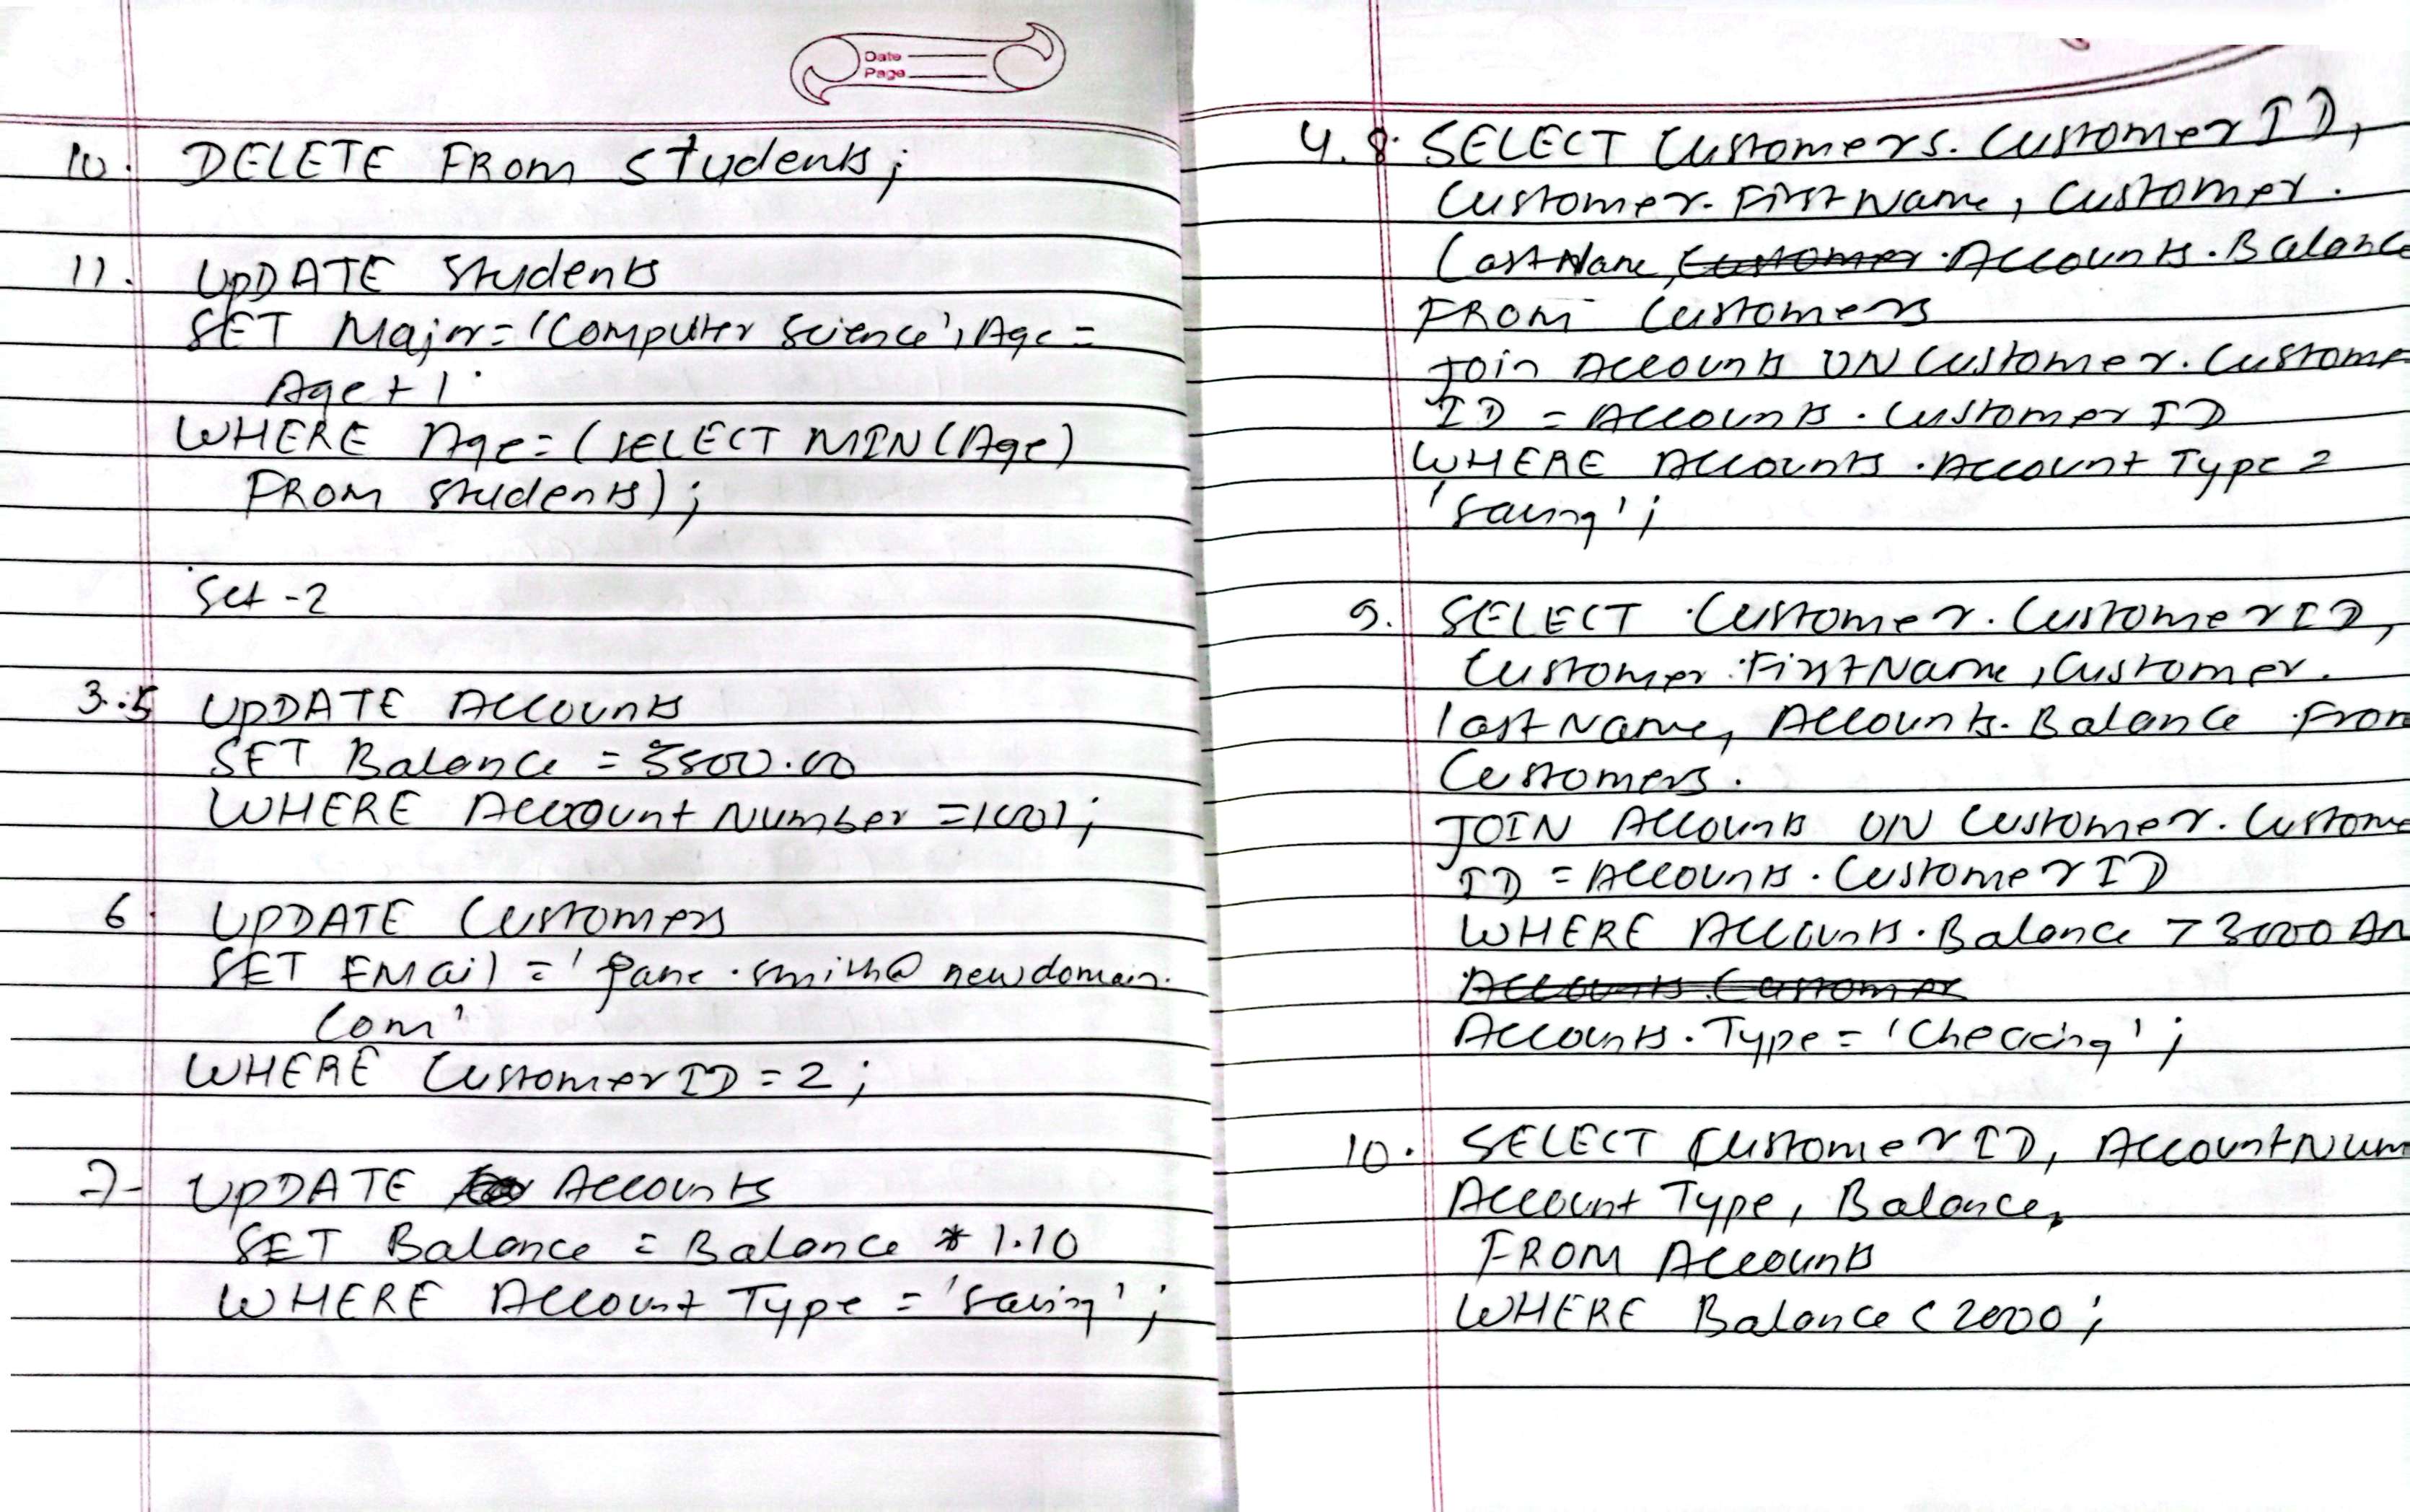 Date
Page
10. DELETE FROM students;
11. UPDATE Students
SET Major='Computer Science', Age =
Age + 1
WHERE Age = (SELECT MIN(Age)
FROM students);
Set -2
3.5 UPDATE Accounts
SET Balance = 5500.00
WHERE Account Number = 1001;
6. UPDATE Customers
SET EMail = 'jane.smith@newdomain.
com'
WHERE CustomerID = 2;
7- UPDATE Accounts
SET Balance = Balance * 1.10
WHERE Account Type = 'saving';
4.8. SELECT Customers.CustomerID,
Customer.FirstName, Customer.
LastName, Customer.Accounts.Balance
FROM Customers
Join Accounts ON Customer.Custome
ID = Accounts.CustomerID
WHERE Accounts.Account Type =
'saving';
9. SELECT Customer.CustomerID,
Customer.FirstName, Customer.
lastName, Accounts.Balance From
Customers.
JOIN Accounts ON Customer.Custome
ID = Accounts.CustomerID
WHERE Accounts.Balance > 3000 AN
Accounts.Customer
Accounts.Type = 'Checking';
10. SELECT CustomerID, AccountNum
Account Type, Balance,
FROM Accounts
WHERE Balance < 2000;